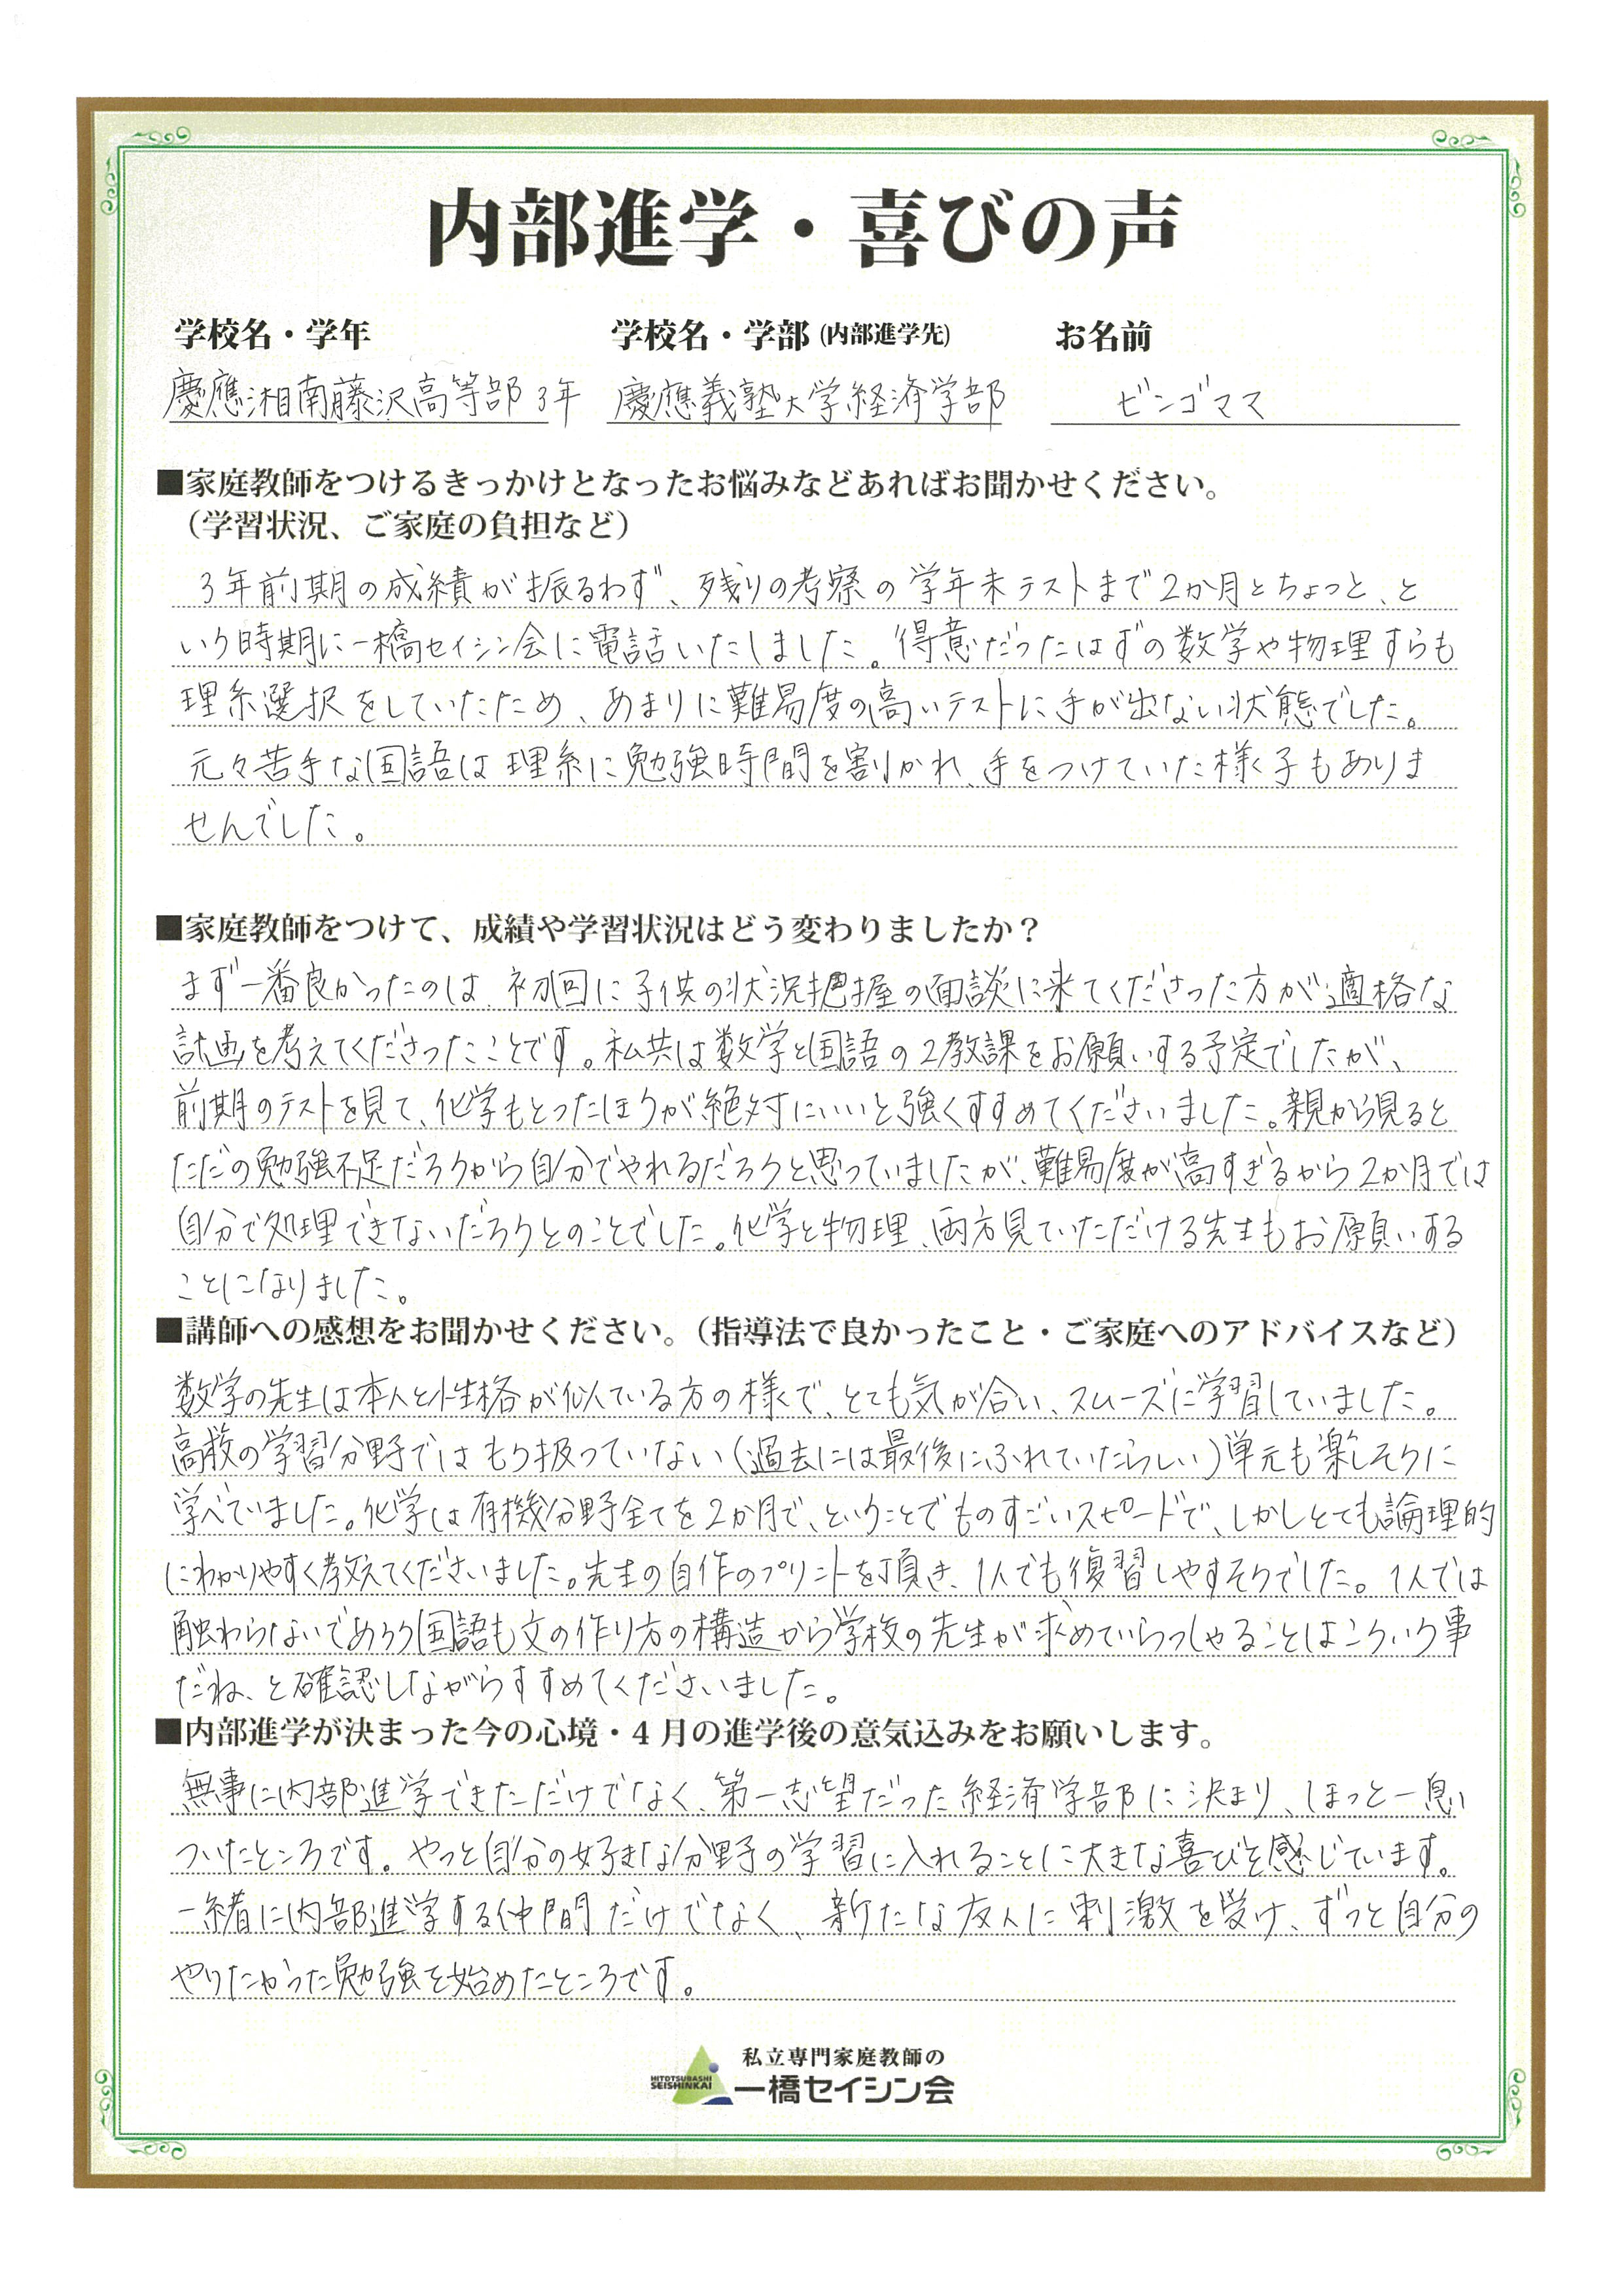 内部進学・喜びの声
学校名・学年 学校名・学部(内部進学先) お名前
慶應湘南藤沢高等部3年 慶應義塾大学経済学部 ビンゴママ
■家庭教師をつけるきっかけとなったお悩みなどあればお聞かせください。
(学習状況、ご家庭の負担など)
3年前期の成績が振るわず、残りの考察の学年末テストまで2か月とちょっと、と
いう時期に一橋セイシン会に電話いたしました。得意だったはずの数学や物理すらも
理系選択をしていたため、あまりに難易度の高いテストに手が出ない状態でした。
元々苦手な国語は理系に勉強時間を割かれ、手をつけていた様子もありま
せんでした。
■家庭教師をつけて、成績や学習状況はどう変わりましたか?
まず一番良かったのは、初回に子供の状況把握の面談に来てくださった方が適格な
計画を考えてくださったことです。私共は数学と国語の2教課をお願いする予定でしたが、
前期のテストを見て、化学もとったほうが絶対にいいと強くすすめてくださいました。親から見ると
ただの勉強不足だろうから自分でやれるだろうと思っていましたが、難易度が高すぎるから2か月では
自分で処理できないだろうとのことでした。化学と物理、両方見ていただける先生もお願いする
ことになりました。
■講師への感想をお聞かせください。(指導法で良かったこと・ご家庭へのアドバイスなど)
数学の先生は本人と性格が似ている方の様で、とても気が合い、スムーズに学習していました。
高校の学習分野ではもう扱っていない(過去には最後にふれていたらしい)単元も楽しそうに
学べていました。化学は有機分野全てを2か月で、ということでものすごいスピードで、しかしとても論理的
にわかりやすく教えてくださいました。先生の自作のプリントを頂き、1人でも復習しやすそうでした。1人では
触わらないであろう国語も文の作り方の構造から学校の先生が求めていらっしゃることはこういう事
だね、と確認しながらすすめてくださいました。
■内部進学が決まった今の心境・4月の進学後の意気込みをお願いします。
無事に内部進学できただけでなく、第一志望だった経済学部に決まり、ほっと一息
ついたところです。やっと自分の好きな分野の学習に入れることに大きな喜びを感じています。
一緒に内部進学する仲間だけでなく、新たな友人に刺激を受け、ずっと自分の
やりたかった勉強を始めたところです。
私立専門家庭教師の
HITOTSUBASHI SEISHINKAI 一橋セイシン会